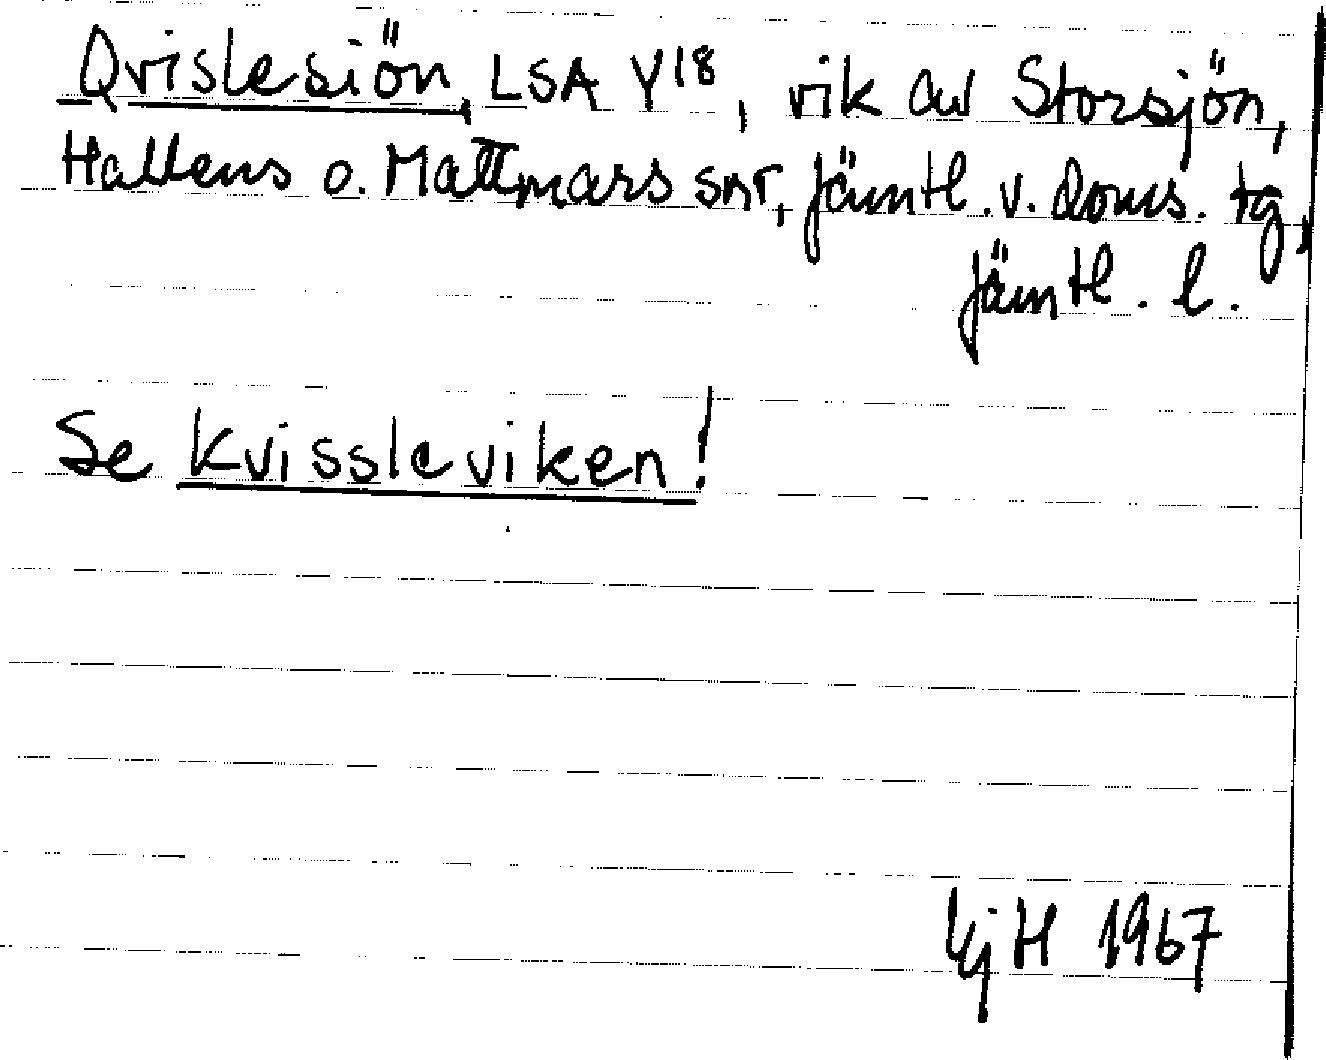 Qvislesiön, LSA Y18, vik av Storsjön,
Hallens o. Mattmars snr, Jämtl. v. doms. tg,
Jämtl. l.
Se Kvissleviken!
KjH 1967